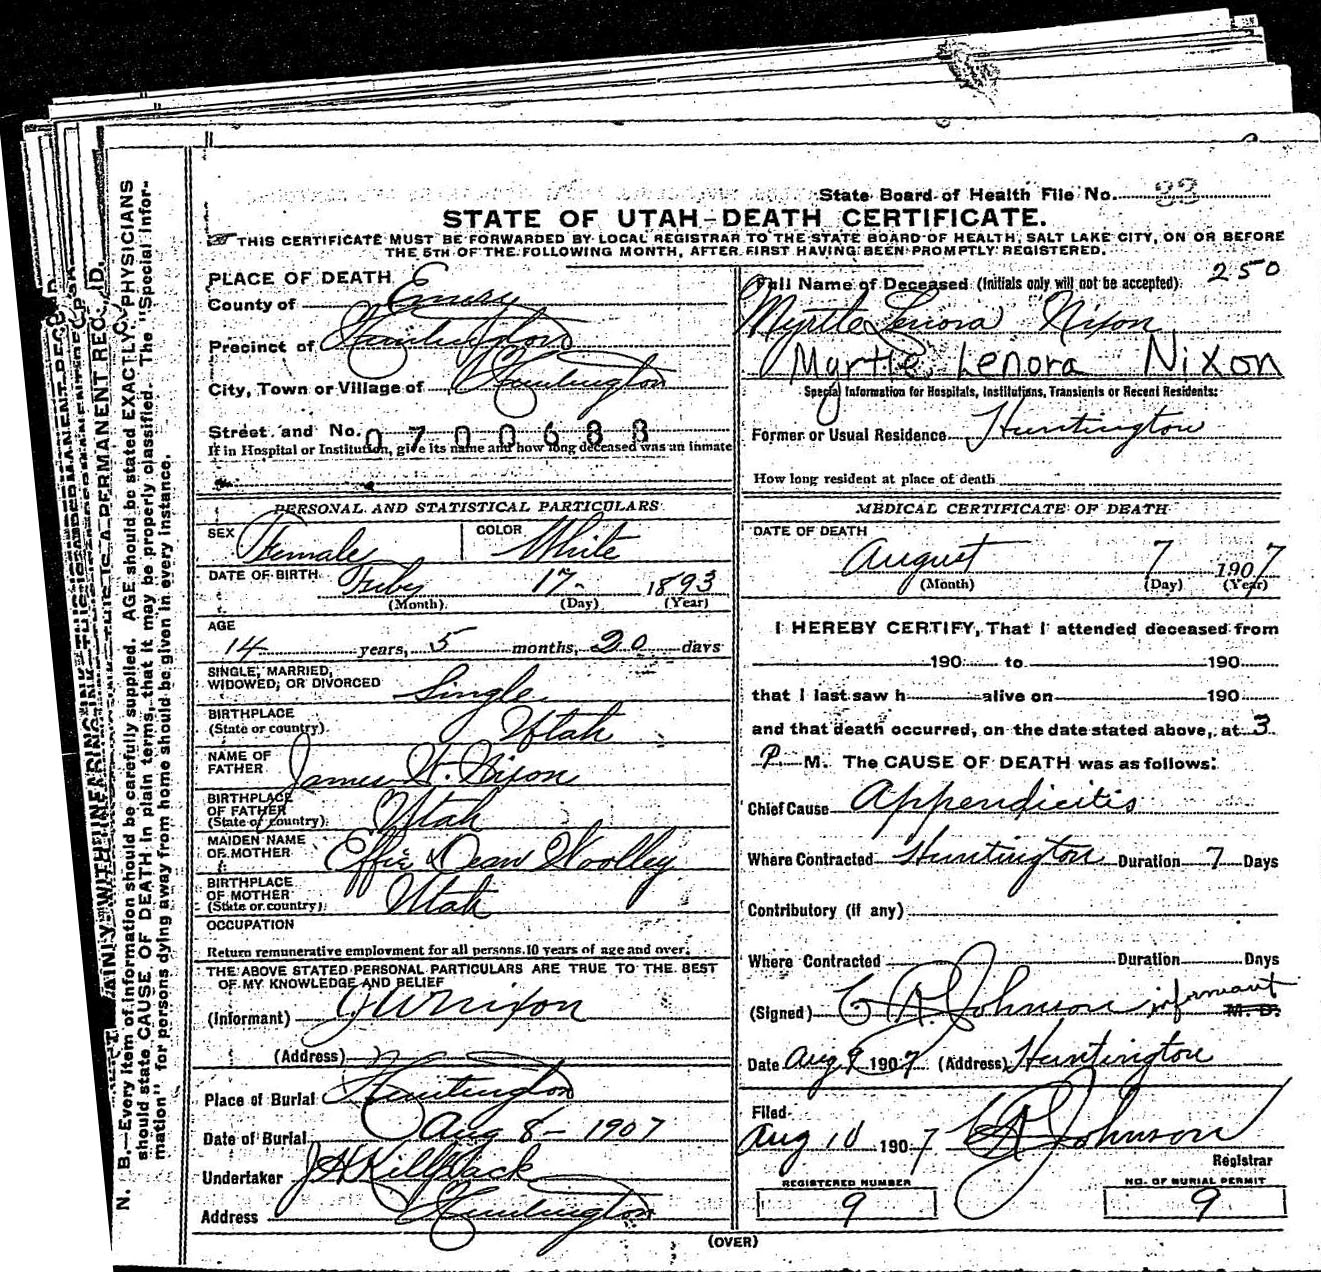 State Board of Health File No. 33
STATE OF UTAH—DEATH CERTIFICATE.
THIS CERTIFICATE MUST BE FORWARDED BY LOCAL REGISTRAR TO THE STATE BOARD OF HEALTH, SALT LAKE CITY, ON OR BEFORE
THE 5TH OF THE FOLLOWING MONTH, AFTER FIRST HAVING BEEN PROMPTLY REGISTERED.
PLACE OF DEATH
County of Emery
Precinct of Huntington
City, Town or Village of Huntington
Street and No.
0700688
If in Hospital or Institution, give its name and how long deceased was an inmate
PERSONAL AND STATISTICAL PARTICULARS
SEX Female COLOR White
DATE OF BIRTH Feby 17- 1893
(Month) (Day) (Year)
AGE
14 years, 5 months, 20 days
SINGLE, MARRIED,
WIDOWED, OR DIVORCED Single
BIRTHPLACE
(State or country) Utah
NAME OF
FATHER James W. Nixon
BIRTHPLACE
OF FATHER
(State or country) Utah
MAIDEN NAME
OF MOTHER Effie Dean Woolley
BIRTHPLACE
OF MOTHER
(State or country) Utah
OCCUPATION
Return remunerative employment for all persons 10 years of age and over.
THE ABOVE STATED PERSONAL PARTICULARS ARE TRUE TO THE BEST
OF MY KNOWLEDGE AND BELIEF
(Informant) J W Nixon
(Address)
Place of Burial Huntington
Date of Burial Aug 8 - 1907
Undertaker J H Killpack
Address Huntington
250
Full Name of Deceased (Initials only will not be accepted).
Myrtle Lenora Nixon
Myrtle Lenora Nixon
Special Information for Hospitals, Institutions, Transients or Recent Residents:
Former or Usual Residence Huntington
How long resident at place of death
MEDICAL CERTIFICATE OF DEATH
DATE OF DEATH
August 7 1907
(Month) (Day) (Year)
I HEREBY CERTIFY, That I attended deceased from
190 to 190
that I last saw h alive on 190
and that death occurred, on the date stated above, at 3
P M. The CAUSE OF DEATH was as follows:
Chief Cause Appendicitis
Where Contracted Huntington Duration 7 Days
Contributory (if any)
Where Contracted Duration Days
(Signed) C A Johnson informant M. D.
Date Aug 9 1907 (Address) Huntington
Filed
Aug 10 1907 C A Johnson
Registrar
REGISTERED NUMBER
9
NO. OF BURIAL PERMIT
9
(OVER)
N. B.—Every item of information should be carefully supplied. AGE should be stated EXACTLY. PHYSICIANS
should state CAUSE OF DEATH in plain terms, that it may be properly classified. The "Special Infor-
mation" for persons dying away from home should be given in every instance.